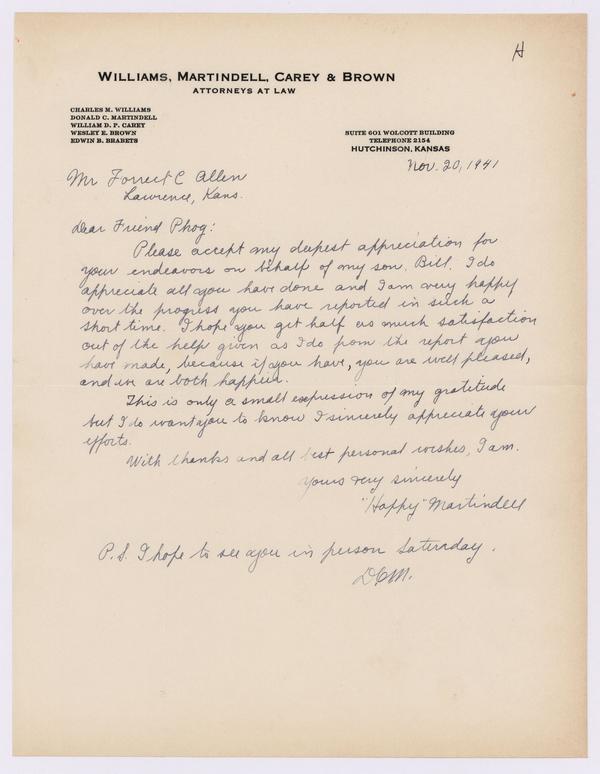 H
WILLIAMS, MARTINDELL, CAREY & BROWN
ATTORNEYS AT LAW
CHARLES M. WILLIAMS
DONALD C. MARTINDELL
WILLIAM D. P. CAREY
WESLEY E. BROWN
EDWIN B. BRABETS
SUITE 601 WOLCOTT BUILDING
TELEPHONE 2154
HUTCHINSON, KANSAS
Nov. 20, 1941
Mr Forrest C Allen
Lawrence, Kans.
Dear Friend Phog:
Please accept my deepest appreciation for
your endeavors on behalf of my son, Bill. I do
appreciate all you have done and I am very happy
over the progress you have reported in such a
short time. I hope you get half as much satisfaction
out of the help given as I do from the report you
have made, because if you have, you are well pleased,
and we are both happier.
This is only a small expression of my gratitude
but I do want you to know I sincerely appreciate your
efforts.
With thanks and all best personal wishes, I am.
Yours very sincerely
"Happy" Martindell
P.S. I hope to see you in person Saturday.
DCM.